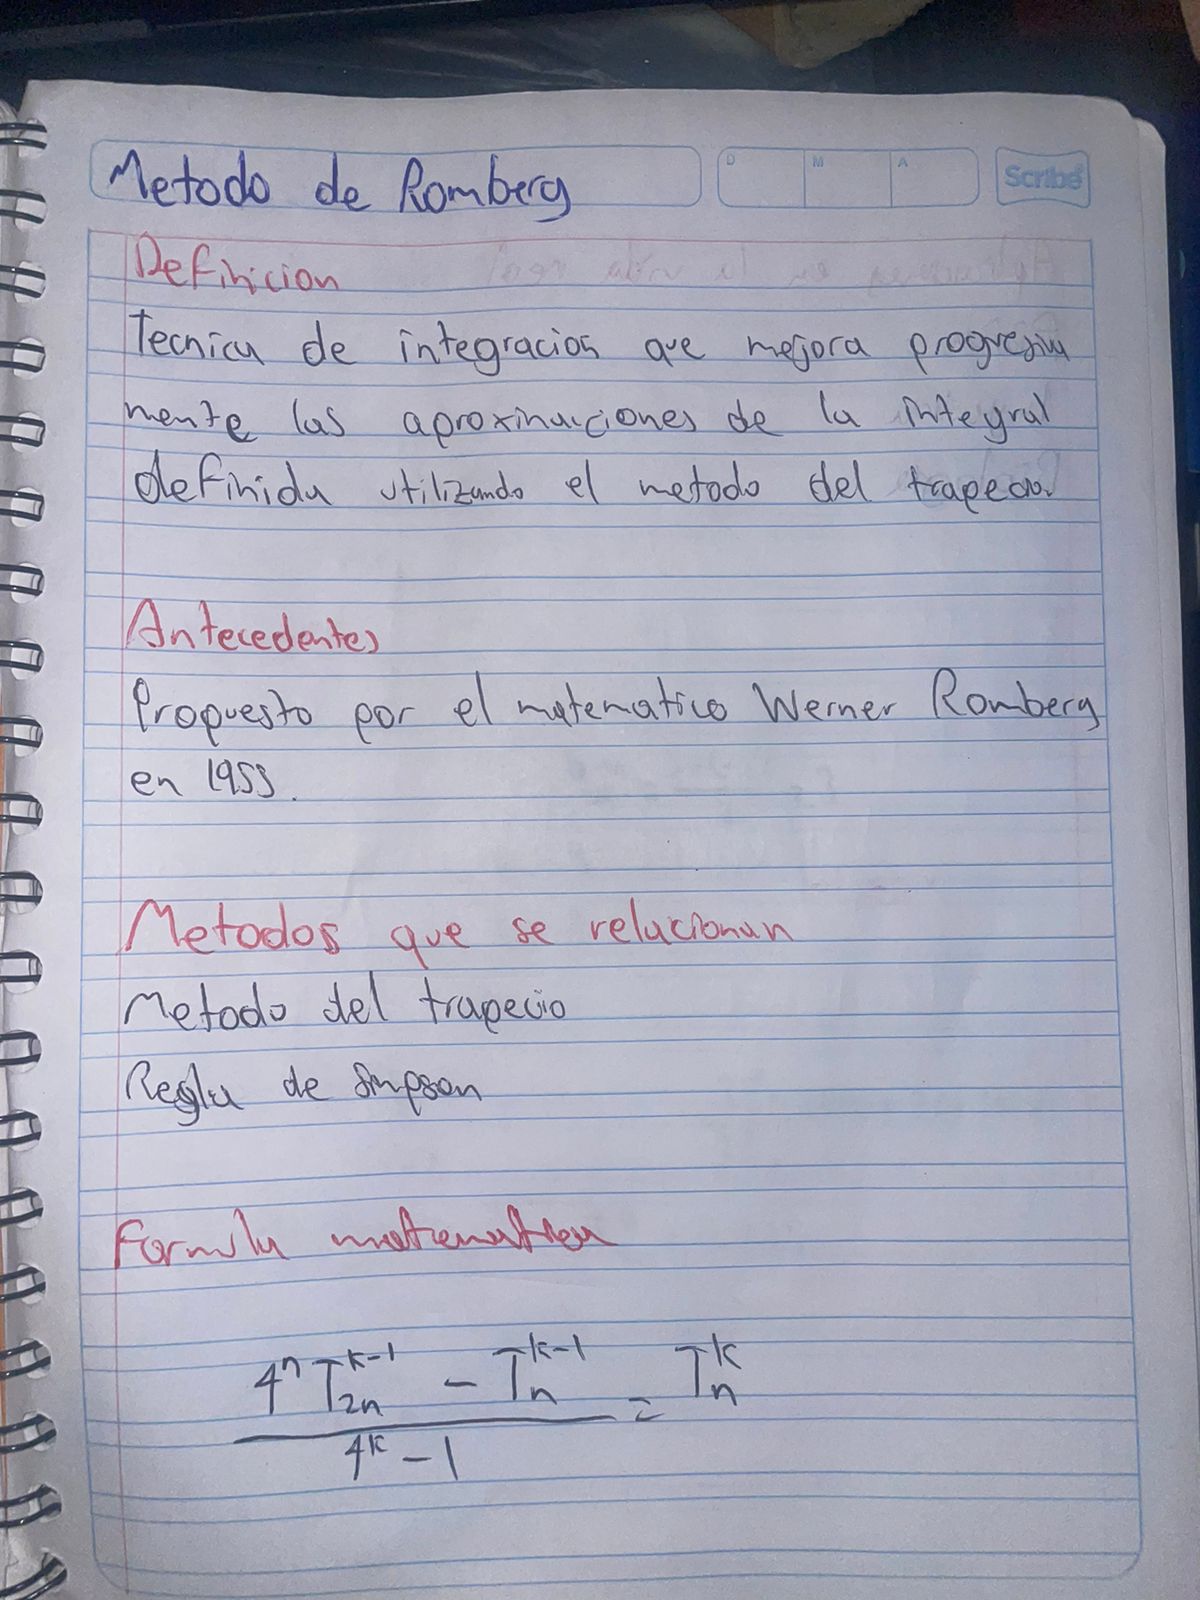 Metodo de Romberg
D M A
Scribe
Definicion
Tecnica de integracion que mejora progresiva
mente las aproximaciones de la integral
definida utilizando el metodo del trapecio.
Antecedentes
Propuesto por el matematico Werner Romberg
en 1955.
Metodos que se relacionan
Metodo del trapecio
Regla de Simpson
Formula matematica
4^n T_{2n}^{k-1} - T_n^{k-1} / 4^k - 1 = T_n^k